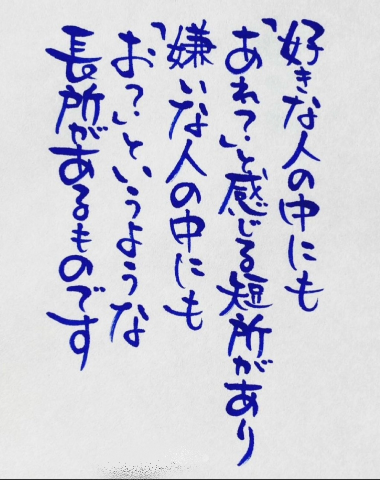 好きな人の中にも
「あれ?」と感じる短所があり
嫌いな人の中にも
「おっ?」というような
長所があるものです